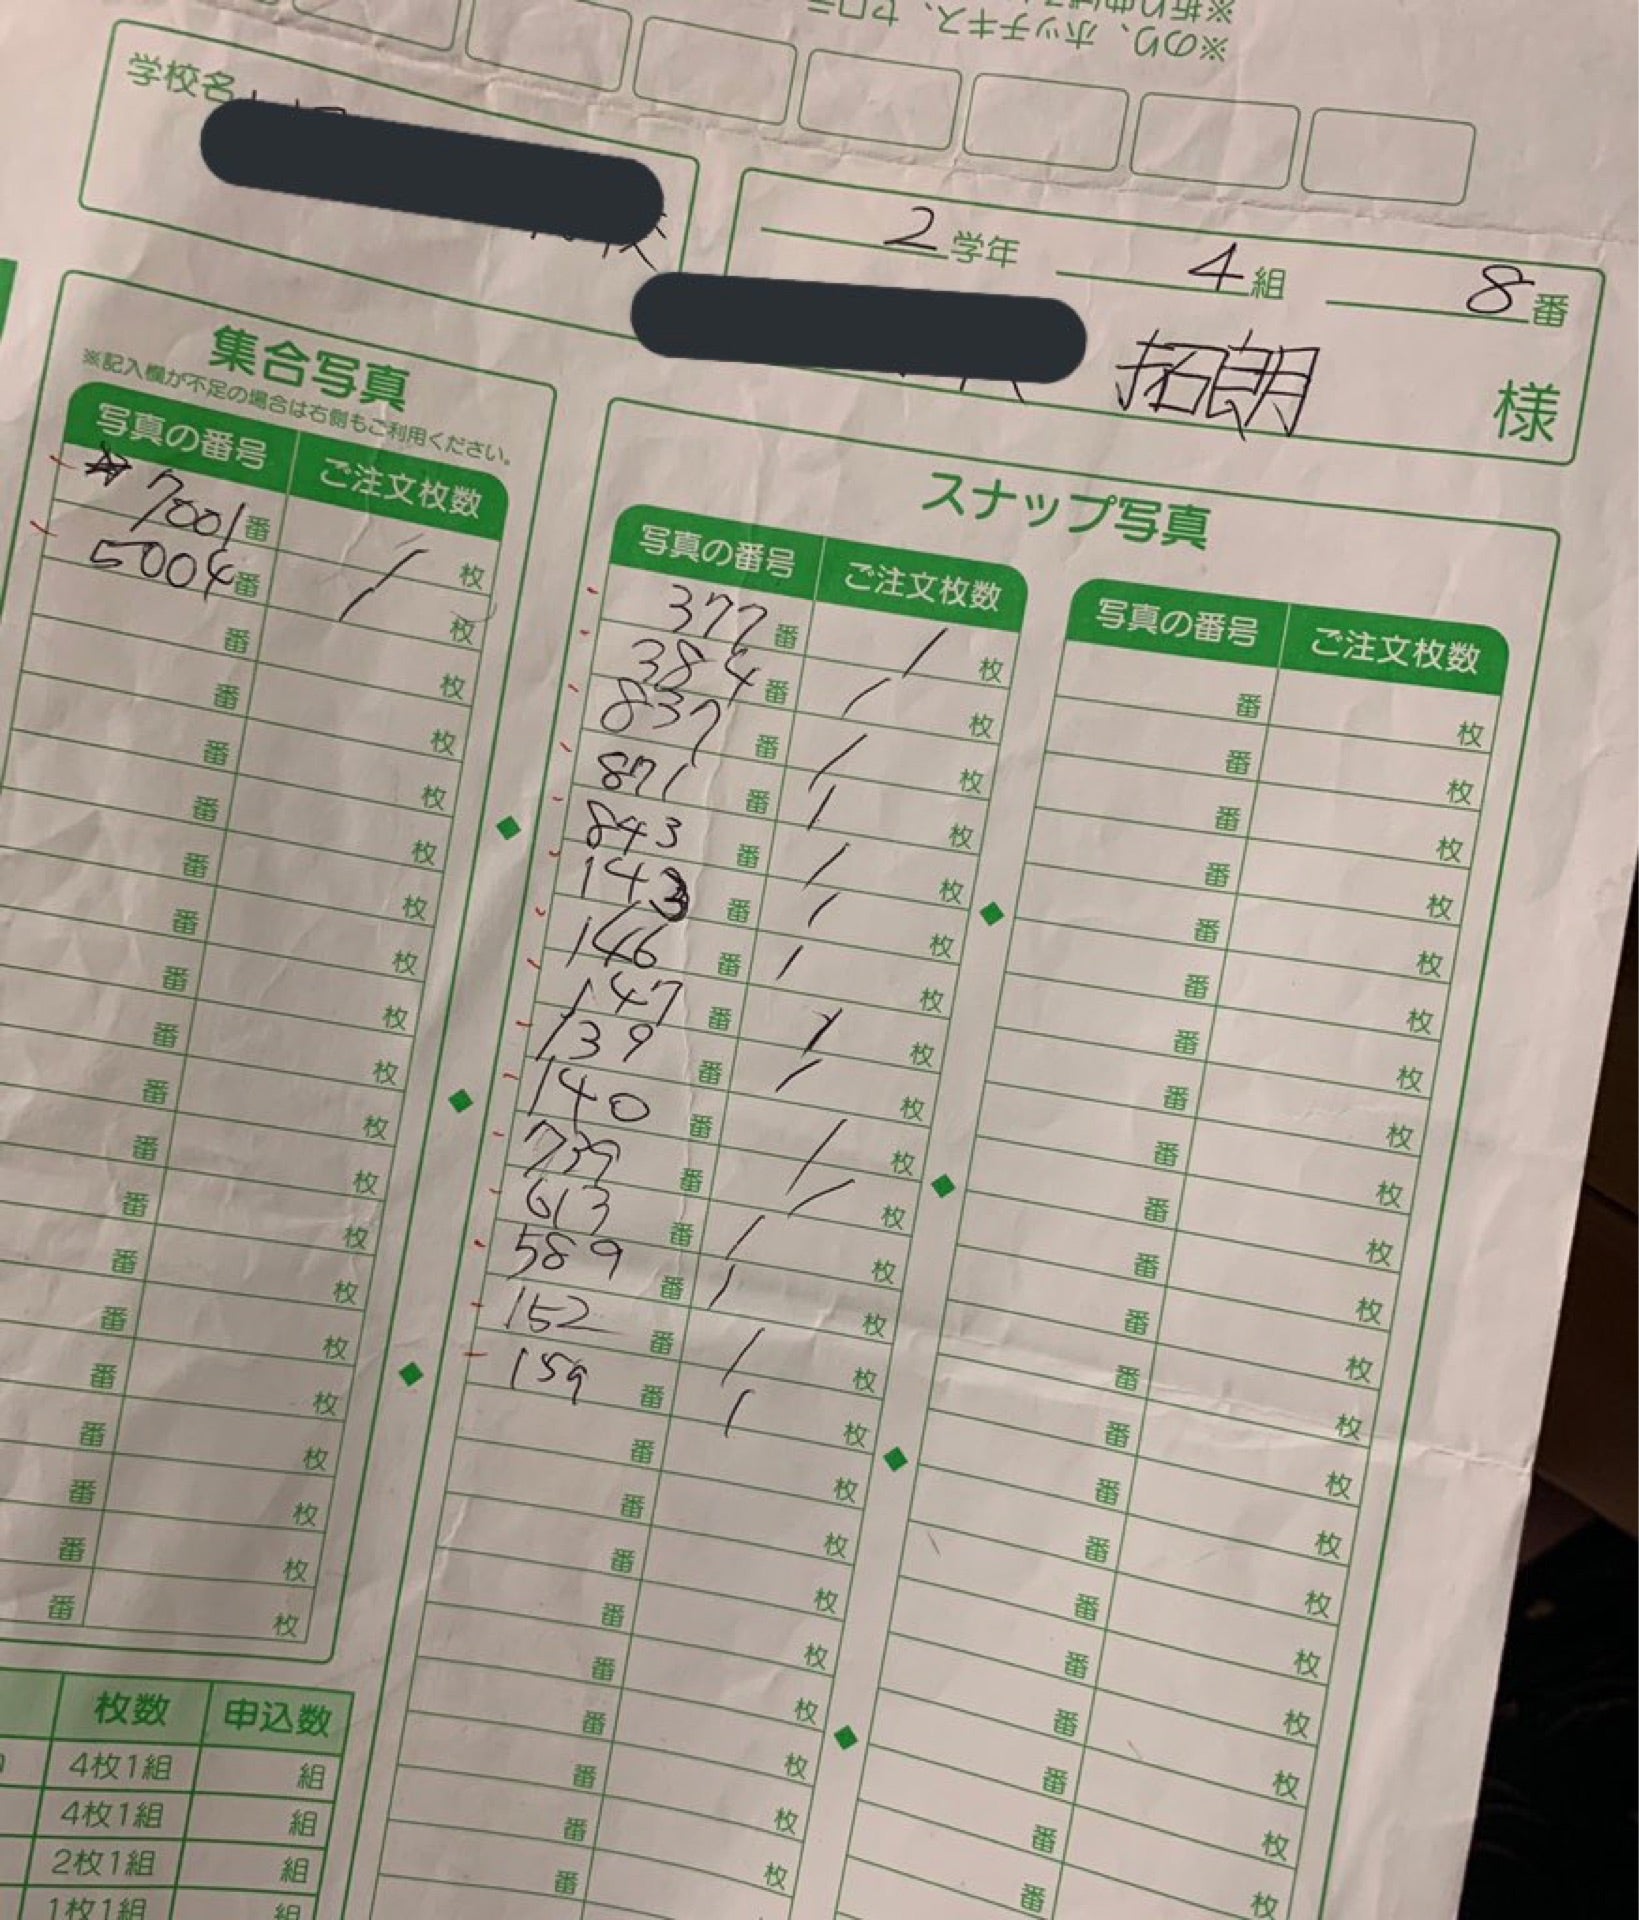 ※折り曲げ
※のり、ホッチキス、セロテ
学校名
2学年 4組 8番
拓朗 様
集合写真
※記入欄が不足の場合は右側もご利用ください。
写真の番号 ご注文枚数
7001番 1枚
5004番 1枚
番 枚
番 枚
番 枚
番 枚
番 枚
番 枚
番 枚
番 枚
番 枚
番 枚
番 枚
番 枚
番 枚
番 枚
番 枚
番 枚
番 枚
番 枚
枚数 申込数
4枚1組 組
4枚1組 組
2枚1組 組
1枚1組 組
スナップ写真
写真の番号 ご注文枚数
377番 1枚
384番 1枚
837番 1枚
871番 1枚
843番 1枚
143番 1枚
146番 1枚
147番 1枚
139番 1枚
140番 1枚
739番 1枚
613番 1枚
589番 1枚
152番 1枚
159番 1枚
番 枚
番 枚
番 枚
番 枚
番 枚
番 枚
番 枚
番 枚
番
写真の番号 ご注文枚数
番 枚
番 枚
番 枚
番 枚
番 枚
番 枚
番 枚
番 枚
番 枚
番 枚
番 枚
番 枚
番 枚
番 枚
番 枚
番 枚
番 枚
番 枚
番 枚
番 枚
番 枚
番 枚